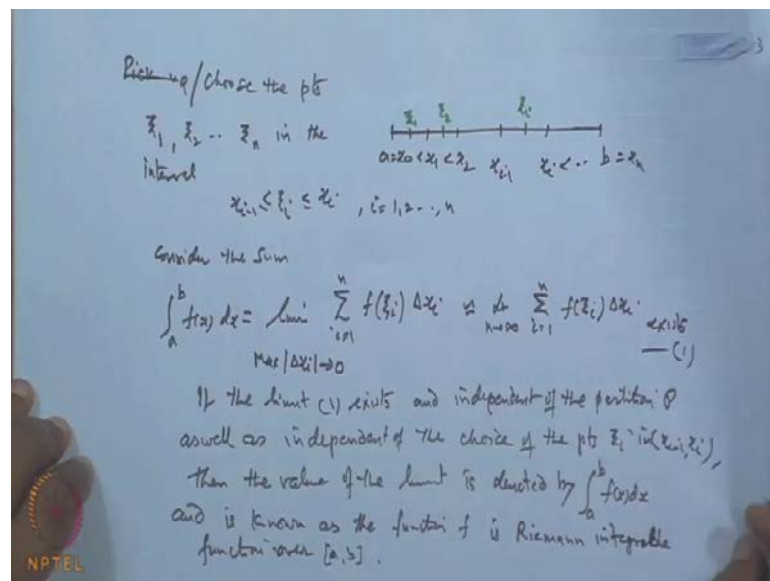 / Choose the pts
ξ₁, ξ₂ .. ξₙ in the
interval
ξ₁ ξ₂ ξᵢ
a=x₀ < x₁ < x₂ xᵢ₋₁ xᵢ < .. b = xₙ
xᵢ₋₁ ≤ ξᵢ ≤ xᵢ , i=1,2..., n
Consider the Sum
∫ₐᵇ f(x) dx = lim Σᵢ₌₁ⁿ f(ξᵢ) Δxᵢ = lim n→∞ Σᵢ₌₁ⁿ f(ξᵢ) Δxᵢ exists
Max |Δxᵢ| → 0 — (1)
If the limit (1) exists and independent of the partition P
aswell as independent of the choice of the pts ξᵢ in (xᵢ₋₁, xᵢ),
then the value of the limit is denoted by ∫ₐᵇ f(x) dx
and is known as the function f is Riemann integrable
function over [a, b].
NPTEL